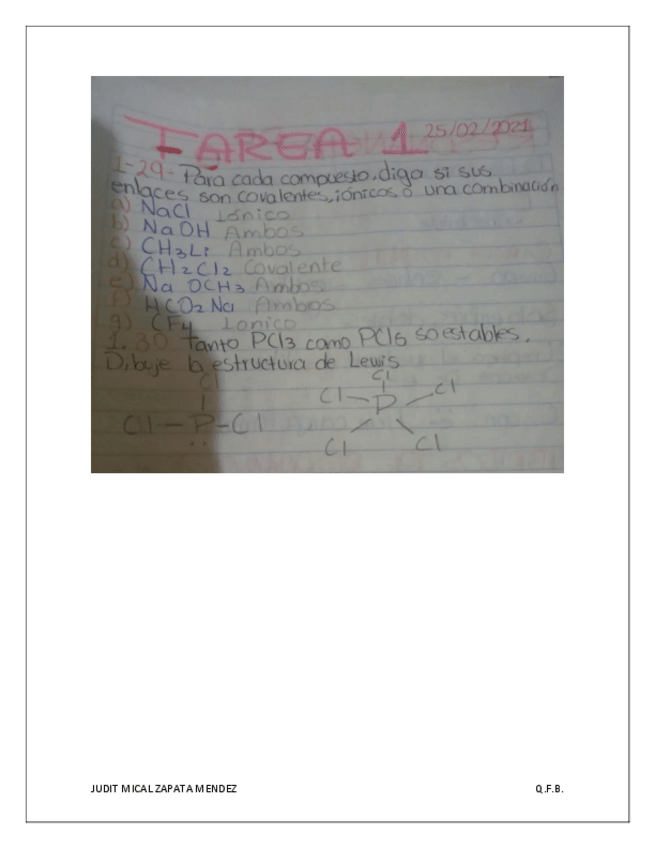 TAREA 1 25/02/2021
1-29.- Para cada compuesto, diga si sus
enlaces son covalentes, iónicos o una combinación
a) NaCl Iónico
b) NaOH Ambos
c) CH3Li Ambos
d) CH2Cl2 Covalente
e) Na OCH3 Ambos
f) HCO2Na Ambos
g) CF4 Ionico
1.30 Tanto PCl3 como PCl5 so estables.
Dibuje la estructura de Lewis
Cl Cl
Cl Cl
Cl—P—Cl P
Cl Cl
JUDIT MICAL ZAPATA MENDEZ Q.F.B.